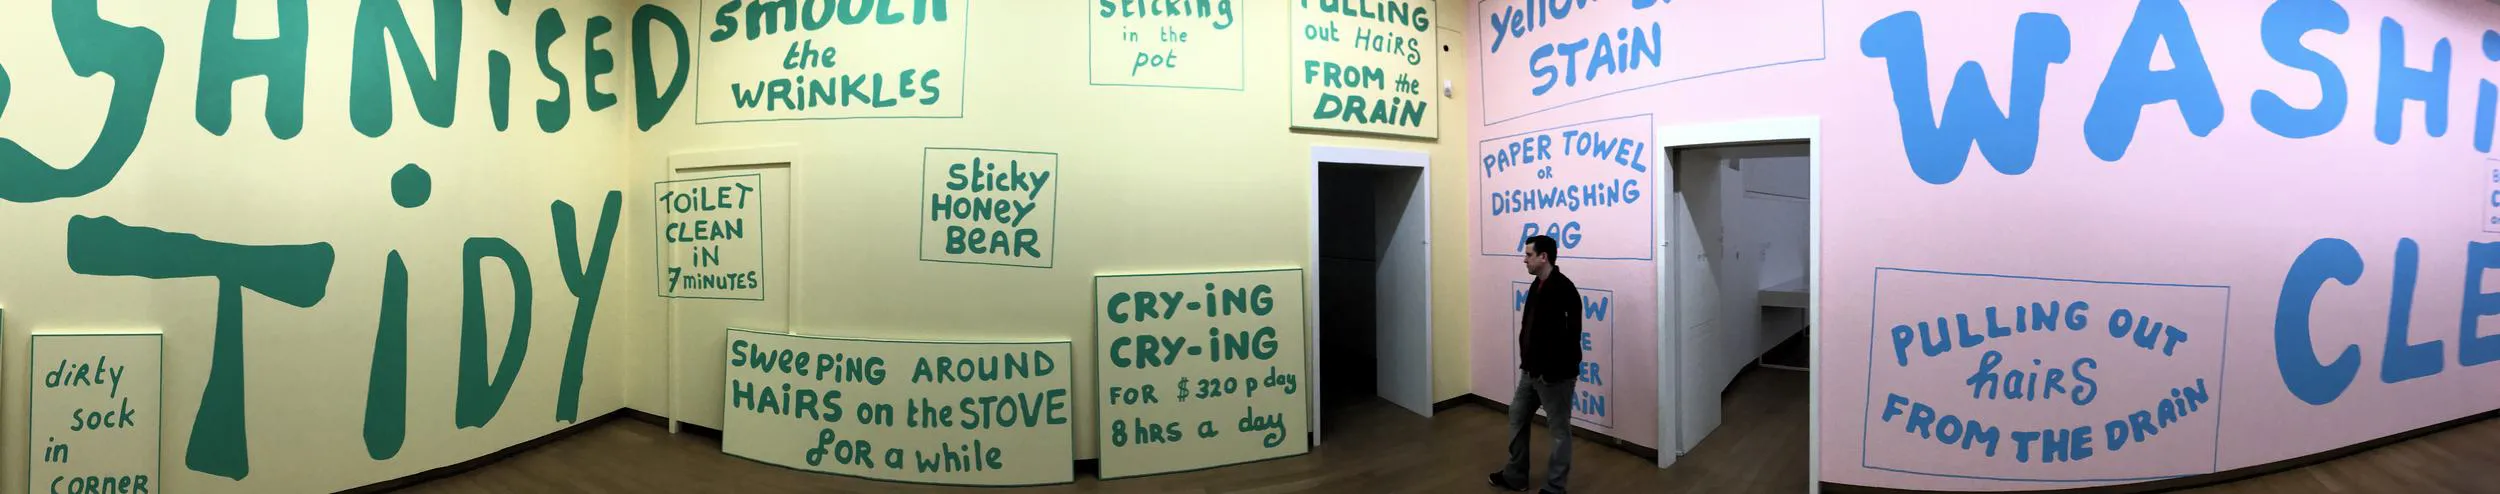 SANiSED
TiDY
diRty
sock
in
CORNER
SMOOth
the
WRiNKLES
TOiLET
CLEAN
iN
7 minUTES
SWeePiNG AROUND
HAiRS on the STOVE
foR a while
Sticky
HONey
BeAR
Sticking
in the
pot
CRY-iNG
CRY-iNG
FOR $320 p day
8 hRS a day
PULLiNG
out HaiRS
FROM the
DRAiN
Yellow
STAiN
PAPER TOWEL
OR
DiSHWASHiNG
RAG
WASHi
CLE
PULLiNG OUT
haiRS
FROM THE DRAiN